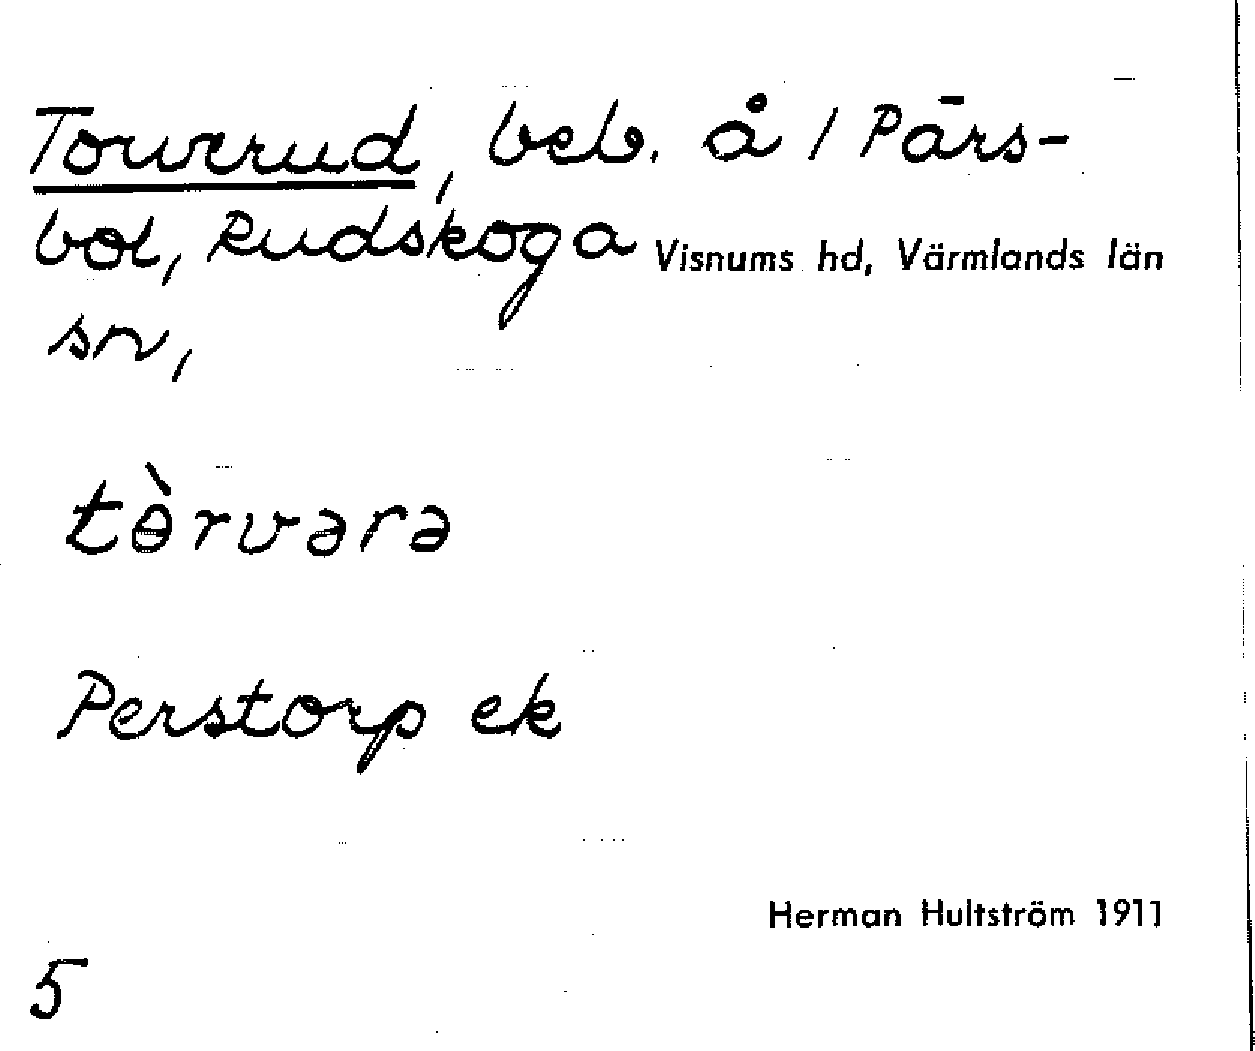 Torverud, beb. å 1 Pärs-
bol, Rudskoga Visnums hd, Värmlands län
sn,
tɵ̀rvərə
Perstorp ek
Herman Hultström 1911
5